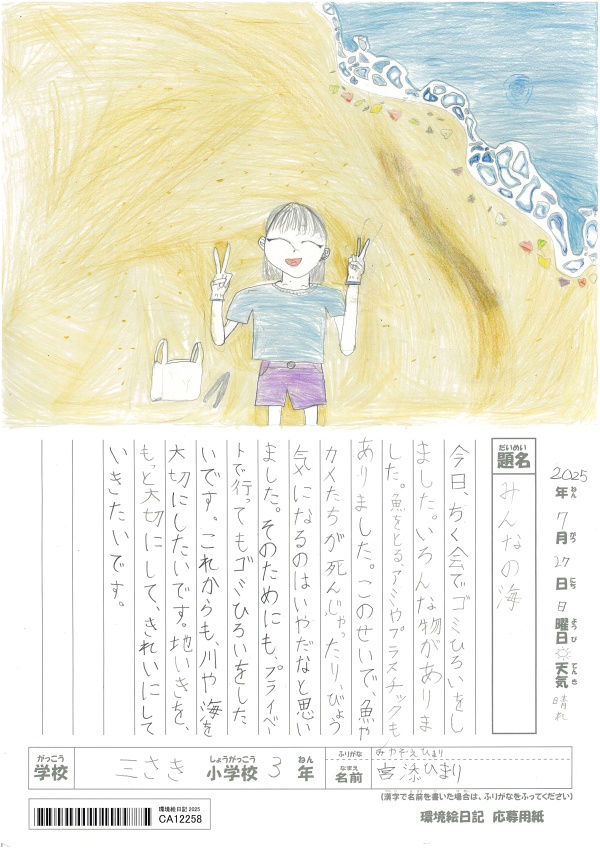 2025年7月27日日曜日天気晴れ
ねん がつ にち ようび てんき
だいめい
題名
みんなの海
今日、ちく会でゴミひろいをし
ました。いろんな物がありま
した。魚をとる、アミやプラスチックも
ありました。このせいで、魚や
カメたちが死んじゃったり、びょう
気になるのはいやだなと思い
ました。そのためにも、プライベー
トで行ってもゴミひろいをした
いです。これからも、川や海を
大切にしたいです。地いきを、
もっと大切にして、きれいにして
いきたいです。
がっこう しょうがっこう ねん
学校 三さき 小学校 3年
ふりがな みやぞえひまり
なまえ
名前 宮添ひまり
(漢字で名前を書いた場合は、ふりがなをふってください)
環境絵日記 2025
CA12258
環境絵日記 応募用紙